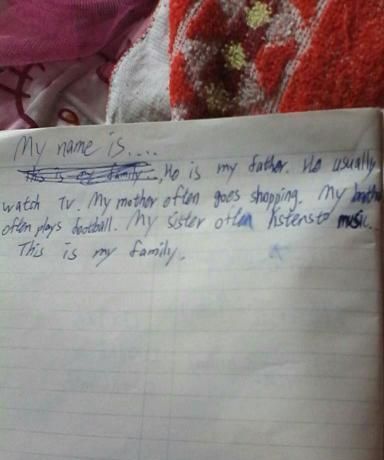 My name is....
This is my family..., He is my father. He usually
watch TV. My mother often goes shopping. My brother
often plays football. My sister often listens to music.
This is my family.